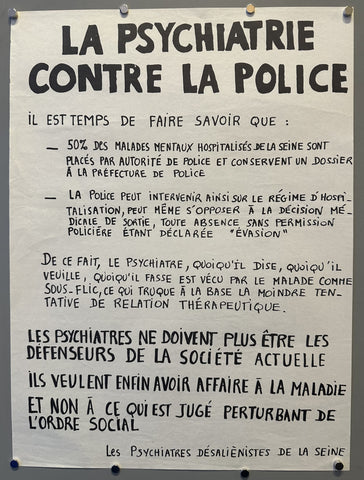 LA PSYCHIATRIE
CONTRE LA POLICE
IL EST TEMPS DE FAIRE SAVOIR QUE :
— 50% DES MALADES MENTAUX HOSPITALISÉS DE LA SEINE SONT
PLACÉS PAR AUTORITÉ DE POLICE ET CONSERVENT UN DOSSIER
À LA PRÉFECTURE DE POLICE
— LA POLICE PEUT INTERVENIR AINSI SUR LE RÉGIME D'HOSPI-
TALISATION, PEUT MÊME S'OPPOSER À LA DÉCISION MÉ-
DICALE DE SORTIE, TOUTE ABSENCE SANS PERMISSION
POLICIÈRE ÉTANT DÉCLARÉE "ÉVASION"
DE CE FAIT, LE PSYCHIATRE, QUOIQU'IL DISE, QUOIQU'IL
VEUILLE, QUOIQU'IL FASSE EST VÉCU PAR LE MALADE COMME
SOUS-FLIC, CE QUI TRUQUE À LA BASE LA MOINDRE TEN-
TATIVE DE RELATION THÉRAPEUTIQUE.
LES PSYCHIATRES NE DOIVENT PLUS ÊTRE LES
DÉFENSEURS DE LA SOCIÉTÉ ACTUELLE
ILS VEULENT ENFIN AVOIR AFFAIRE À LA MALADIE
ET NON À CE QUI EST JUGÉ PERTURBANT DE
L'ORDRE SOCIAL
LES PSYCHIATRES DÉSALIÉNISTES DE LA SEINE